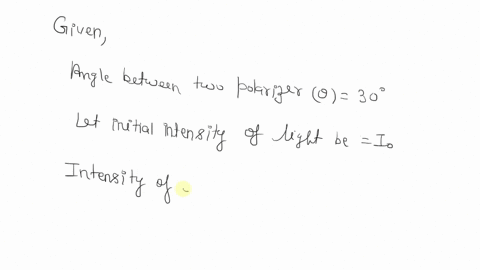 Given,
Angle between two polarizer (θ) = 30°
Let initial intensity of light be = I₀
Intensity of